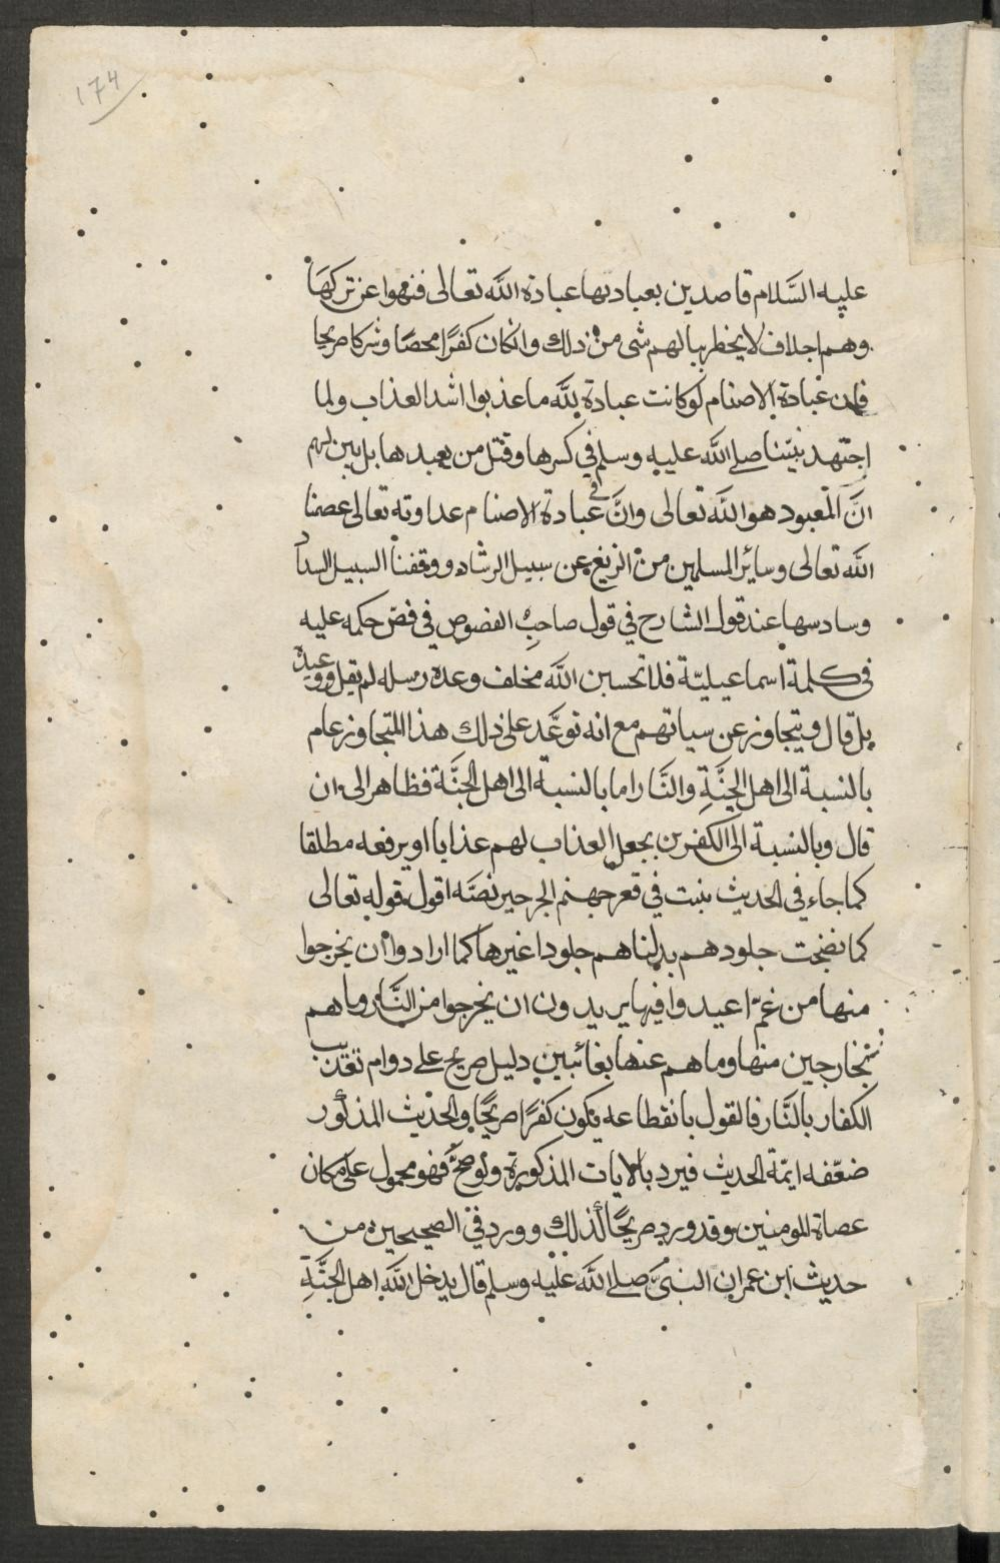 ١٧٤
عليه السَّلام قاصدين بعبادتها عبادة الله تعالى فنهوا عن تركهَا
وهم اجلاف لا يخطر ببالهم شى من ذلك وانكان كفرًا محضًا وشركا صريحا
فان عبادة الاصنام لو كانت عبادة لله ما عذبوا اشد العذاب ولما
اجتهد نبيّنا صلى الله عليه وسلم في كسرها وقتل من يعبدها بل بين لهم
انَّ المعبود هو الله تعالى وانَّ في عبادة الاصنام عداوته تعالى عصمنا
الله تعالى وساير المسلمين من الزيغ عن سبيل الرشاد ووقفنا السبيل السداد
وسادسها عند قول الشارح في قول صاحب الفصوص في فص حكمة عليه
فى كلمة اسماعيليّة فلا تحسبن الله مخلف وعده رسله لم يقل ووعيده
بل قال ويتجاوز عن سياتهم مع انه توعَّد على ذلك هذا المتجاوز عام
بالنسبة الى اهل الجنَّةِ والنَّار اما بالنسبة الى اهل الجنَّة فظاهر الى ان
قال وبالنسبة الى الكفرين بجعل العذاب لهم عذابا او يرفعه مطلقا
كما جاء في الحديث ينبت في قعر جهنم الجرجير نصّه اقول قوله تعالى
كما نضجت جلودهم بدلناهم جلودا غيرها كما ارادوا ان يخرجوا
منها من غمّ اعيدوا فيها يريدون ان يخرجوا من النَّار وما هم
بخارجين منها وما هم عنها بغائبين دليل صريح على دوام تعذيب
الكفار بالنَّار فالقول بانقطاعه يكون كفرًا صريحًا والحديث المذكور
ضعّفه ايمّة الحديث فيرد بالايات المذكورة ولو صحَّ فهو محمول على مكان
عصاة المومنين وقد ورد صريحًا لذلك وورد في الصحيحين من
حديث ابن عمر ان النبىَّ صلى الله عليه وسلم قال يدخل الله اهل الجنَّةِ